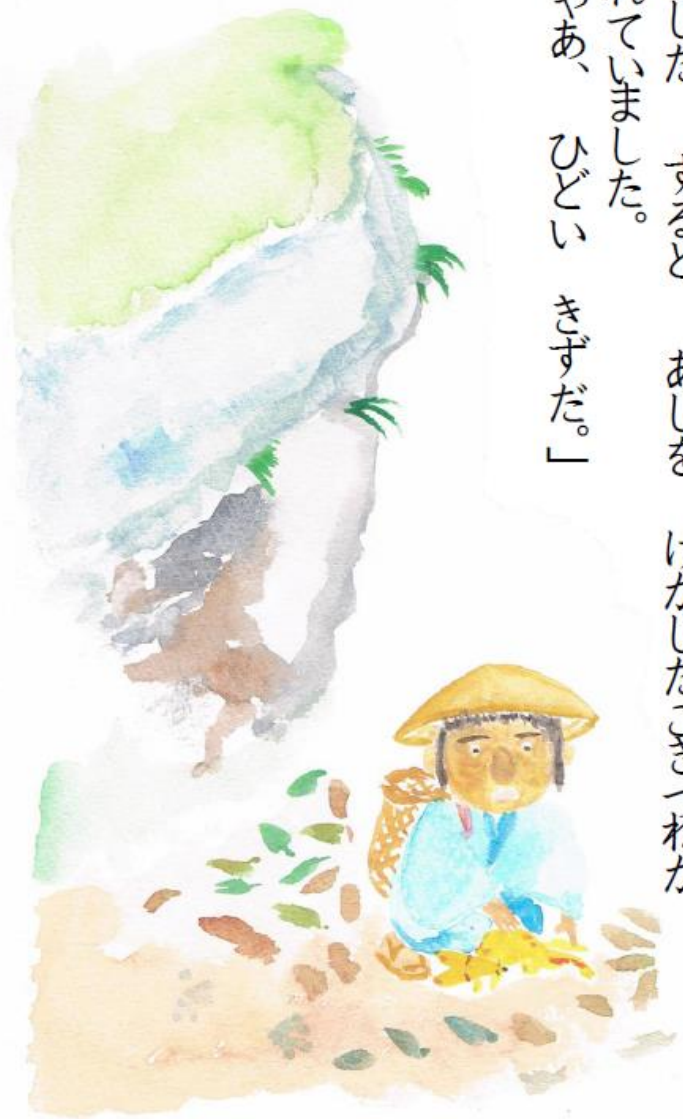 した すると あしを けがしたこぎつねが
れていました。
ゃあ、 ひどい きずだ。」